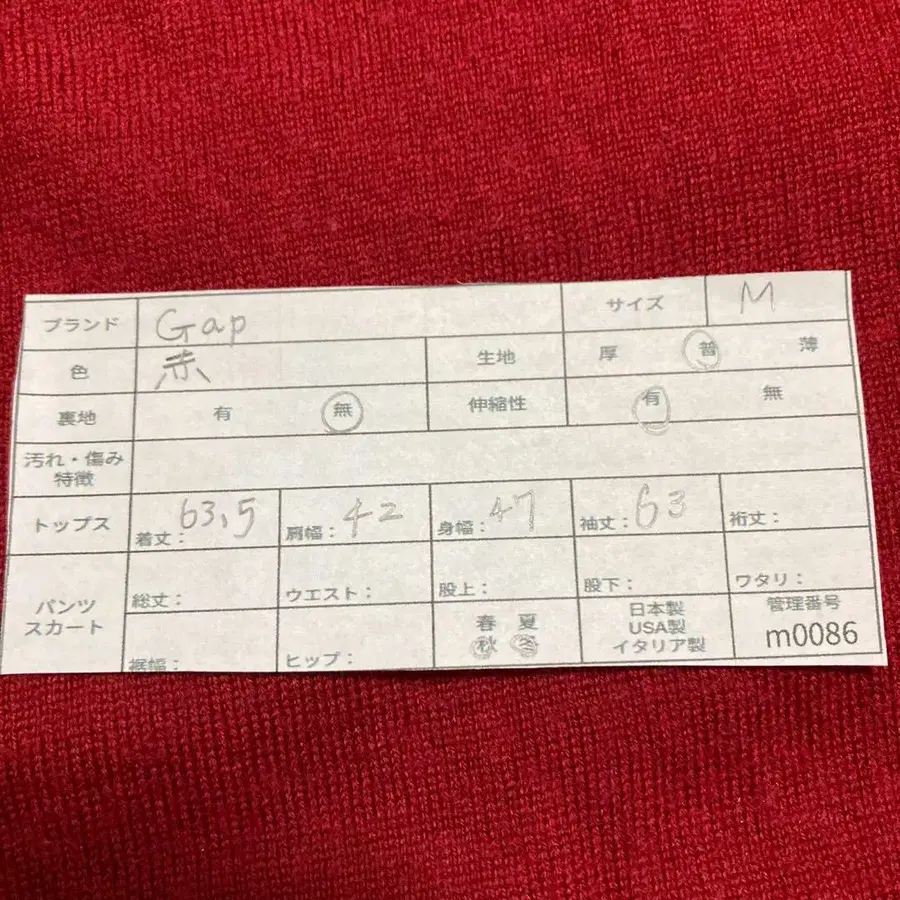 ブランド Gap サイズ M
色 赤 生地 厚 普 薄
裏地 有 無 伸縮性 有 無
汚れ・傷み
特徴
トップス 着丈: 63.5 肩幅: 42 身幅: 47 袖丈: 63 裄丈:
パンツ
スカート
総丈: ウエスト: 股上: 股下: ワタリ:
裾幅: ヒップ:
春 夏
秋 冬
日本製
USA製
イタリア製
管理番号
m0086